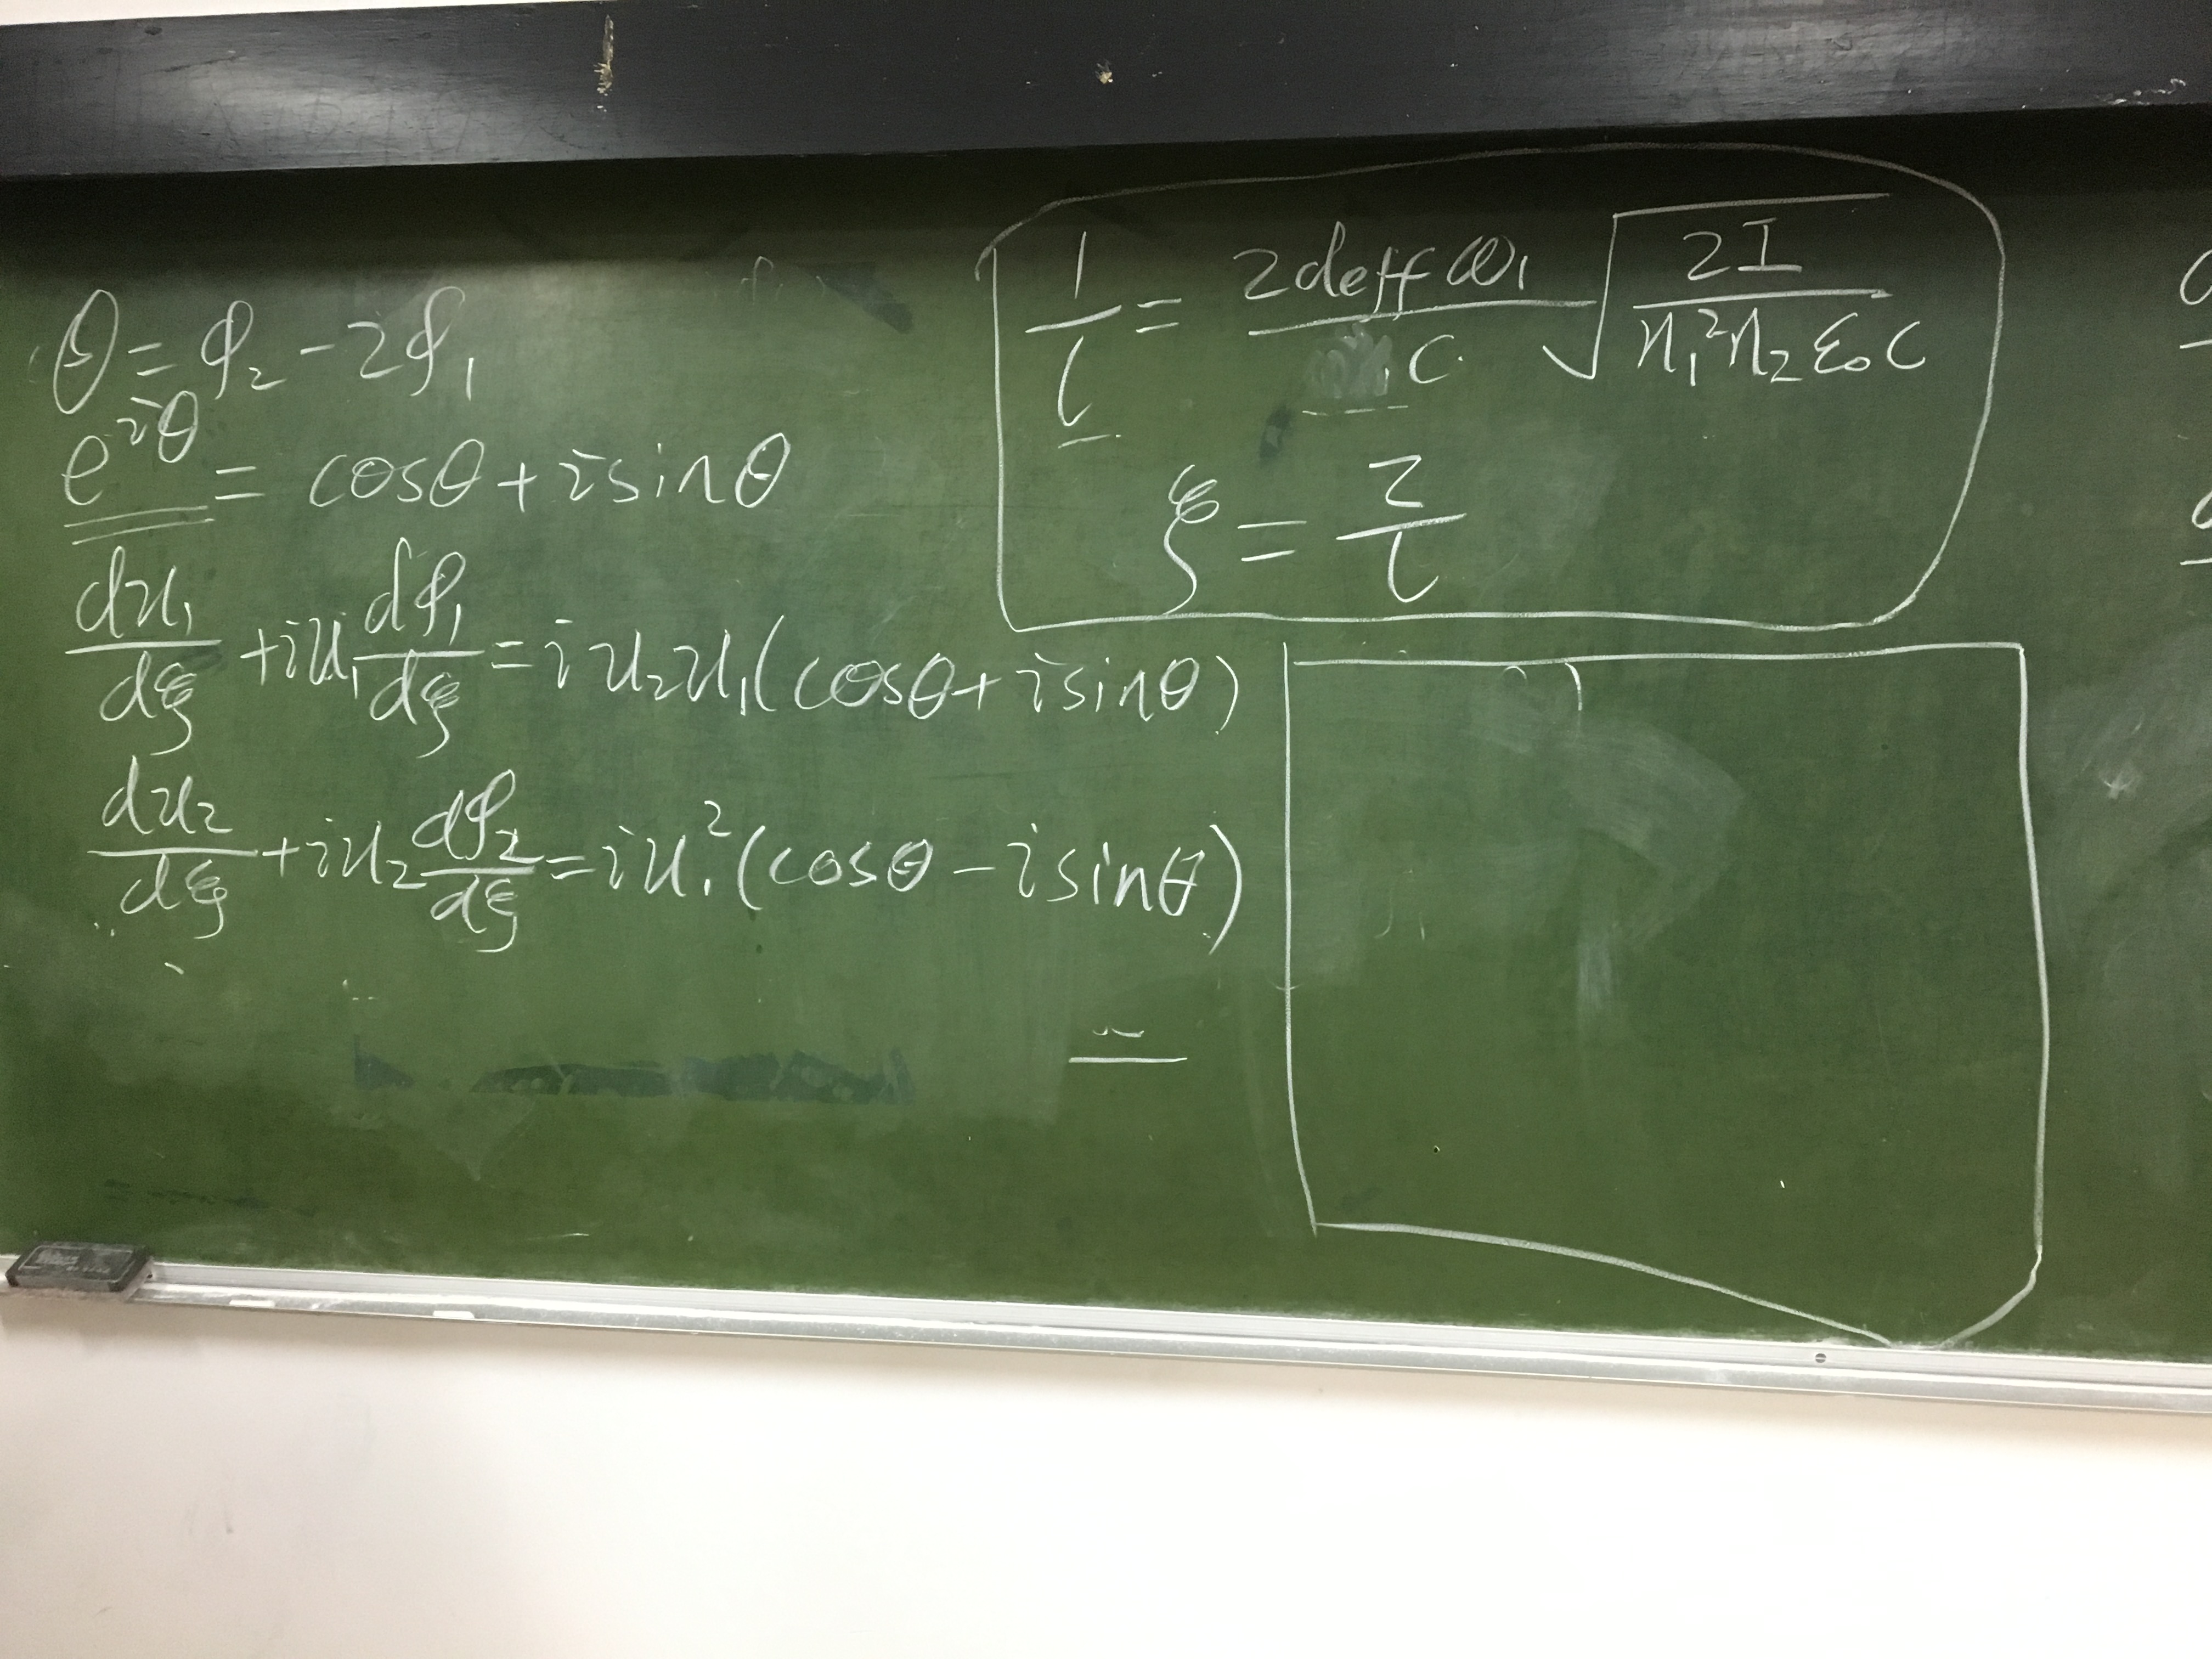 θ = φ₂ - 2φ₁
e^{iθ} = cosθ + i sinθ
du₁/dξ + iu₁ dφ₁/dξ = i u₂u₁(cosθ + i sinθ)
du₂/dξ + iu₂ dφ₂/dξ = iu₁²(cosθ - i sinθ)
1/l = 2deff ω₁/c √(2I/(n₁²n₂ε₀c))
ξ = z/l